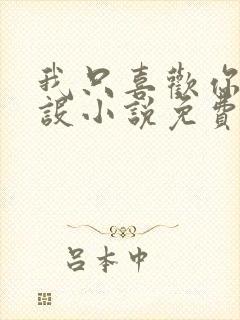 我只喜歡你
設小說免費
呂本中